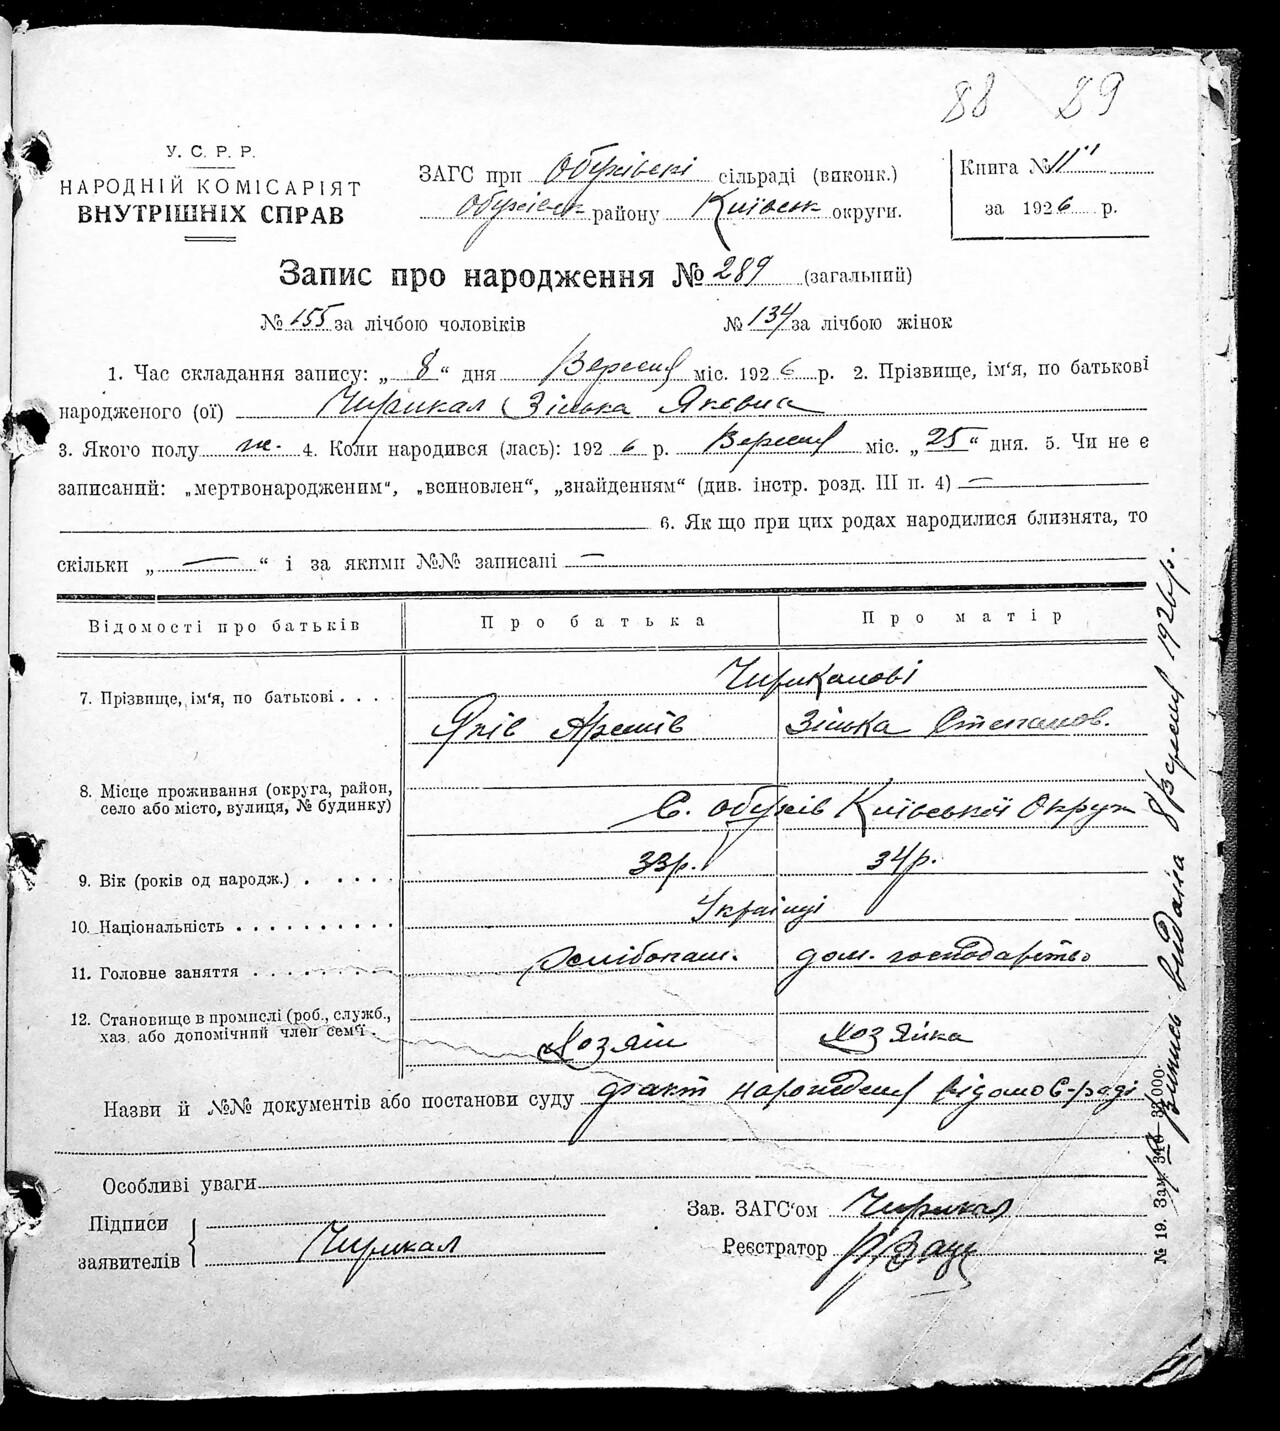 88 89
У. С. Р. Р.
НАРОДНІЙ КОМІСАРІЯТ
ВНУТРІШНІХ СПРАВ
ЗАГС при Обухівскі сільраді (виконк.)
Обухівськ району Київськ округи.
Книга № 11
за 1926 р.
Запис про народження № 289 (загальний)
№ 155 за лічбою чоловіків № 134 за лічбою жінок
1. Час складання запису: „ 8 “ дня Вересня міс. 1926 р. 2. Прізвище, ім'я, по батькові
народженого (ої) Чирикал Зінька Яковна
3. Якого полу ж. 4. Коли народився (лась): 1926 р. Вересня міс. „ 25 “ дня. 5. Чи не є
записаний: „мертвонародженим“, „всиновлен“, „знайденням“ (див. інстр. розд. III п. 4) —
6. Якщо при цих родах народилися близнята, то
скільки „ — “ і за якими №№ записані —
Відомості про батьків Про батька Про матір
Чирикалові
7. Прізвище, ім'я, по батькові . . .
Яків Зінька Степанов.
8. Місце проживання (округа, район,
село або місто, вулиця, № будинку)
С. Обухів Київської Округи
9. Вік (років од народж.) . . . . . 33р. 34р.
10. Національність . . . . . . . . . . Українці
11. Головне заняття . . . . . . . . дом. господарство
12. Становище в промислі (роб., служб.,
хаз. або допомічний член сем'ї .
Хозяїн Хозяйка
Назви й №№ документів або постанови суду факт народження відомо С-раді
Особливі уваги
Підписи
заявителів
Чирикал
Зав. ЗАГС'ом Чирикал
Реєстратор
Випись видана 8 Вересня 1926 р.
№ 19. Зам. 310—35.000.